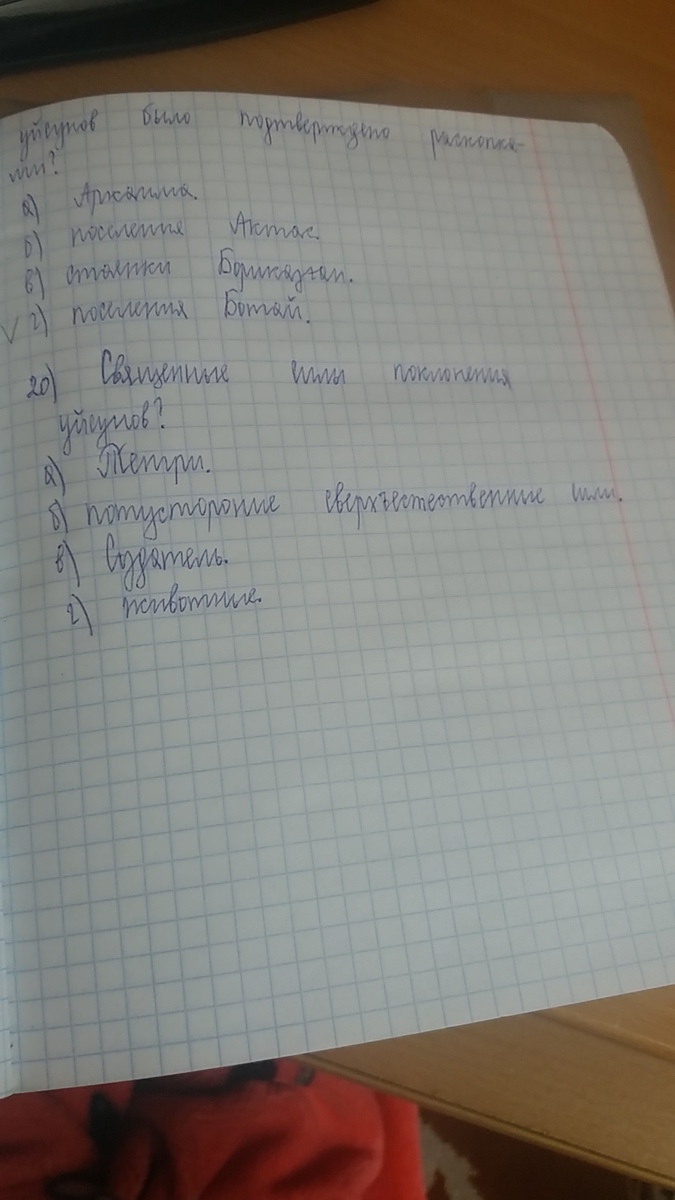 уйсунов было подтверждено раскопка-
ми?
а) Аркаима.
б) поселения Актас.
в) стоянки Бориказган.
√ г) поселения Ботай.
20) Священные силы поклонения
уйсунов?
а) Тенгри.
б) потусторонние сверхъестественные силы.
в) Создатель.
г) животные.